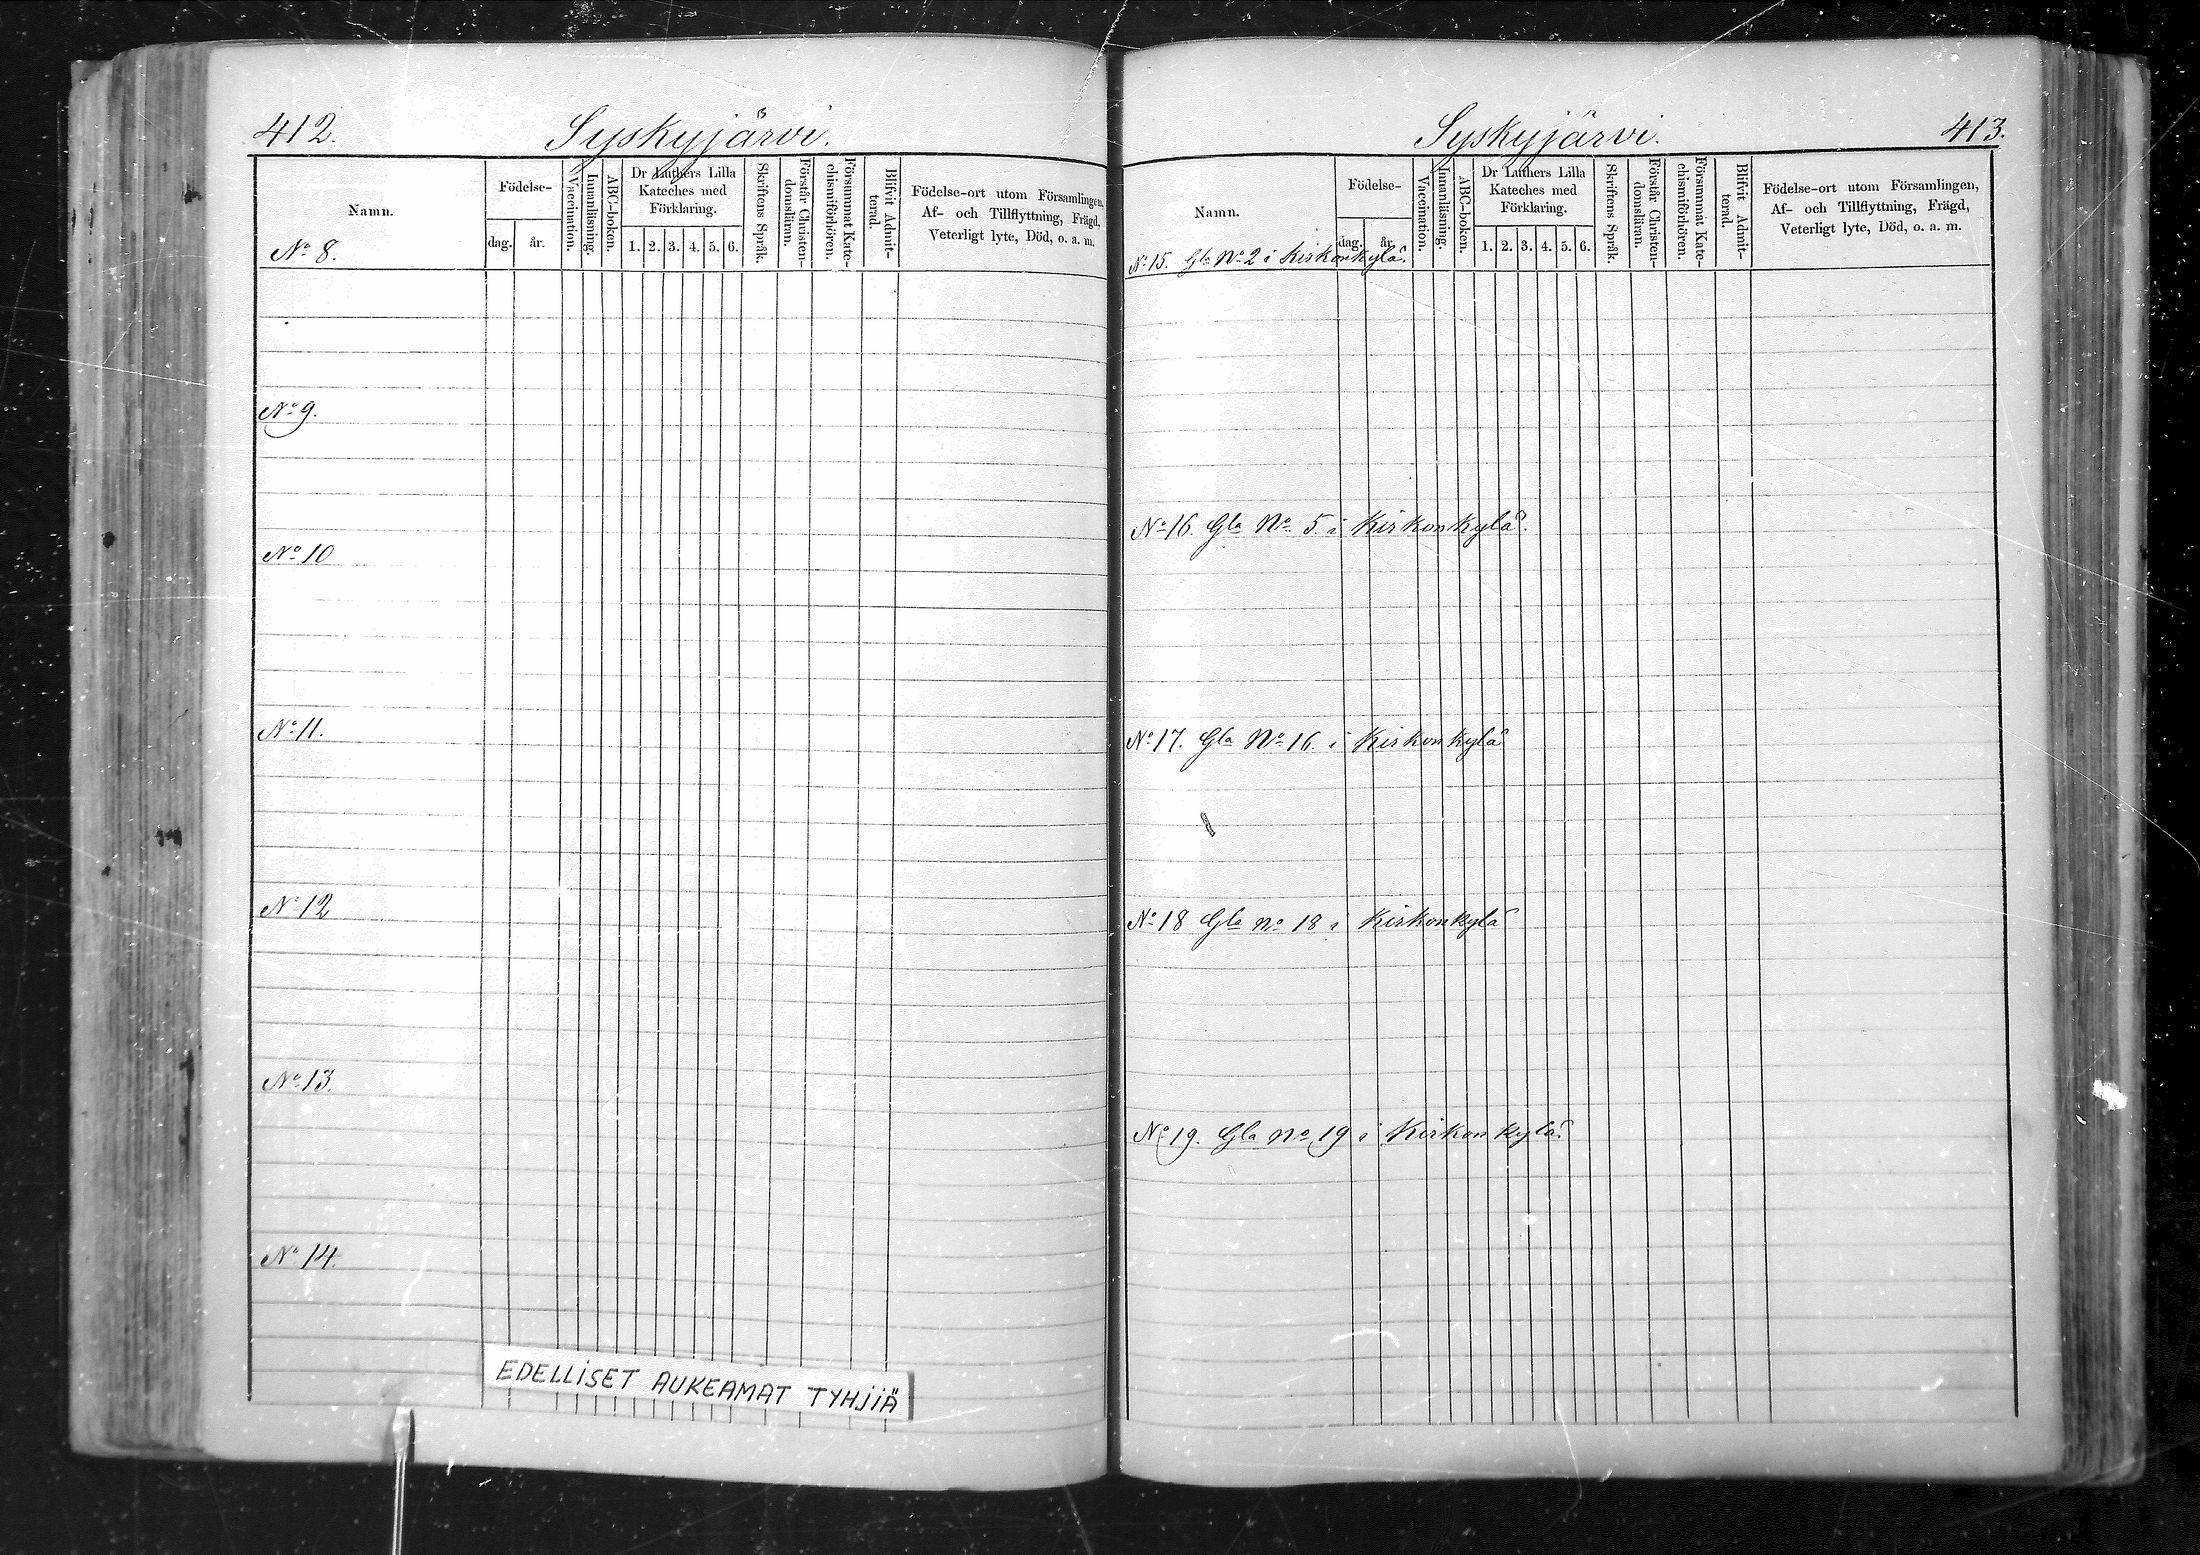 412.
Syskyjärvi.
Namn.
Födelse-
dag.
år.
Vaccination.
Innanläsning.
ABC-boken.
Dr Luthers Lilla
Kateches med
Förklaring.
1. 2. 3. 4. 5. 6.
Skriftens Språk.
Förstår Christen-
domsläran.
Försummat Kate-
chismiförhören.
Blifvit Admit-
terad.
Födelse-ort utom Församlingen,
Af- och Tillflyttning, Frägd,
Veterligt lyte, Död, o. a. m.
No 8.
No 9.
No 10
No 11.
No 12
No 13.
No 14.
EDELLISET AUKEAMAT TYHJIÄ
Syskyjärvi.
413.
Namn.
Födelse-
dag.
år.
Vaccination.
Innanläsning.
ABC-boken.
Dr Luthers Lilla
Kateches med
Förklaring.
1. 2. 3. 4. 5. 6.
Skriftens Språk.
Förstår Christen-
domsläran.
Försummat Kate-
chismiförhören.
Blifvit Admit-
terad.
Födelse-ort utom Församlingen,
Af- och Tillflyttning, Frägd,
Veterligt lyte, Död, o. a. m.
No 15. Gla No 2 i Kirkonkylä.
No 16. Gla No 5. i Kirkonkylä.
No 17. Gla No 16. i Kirkonkylä
No 18 Gla No 18 i Kirkonkylä
No 19. Gla No 19 i Kirkonkylä.